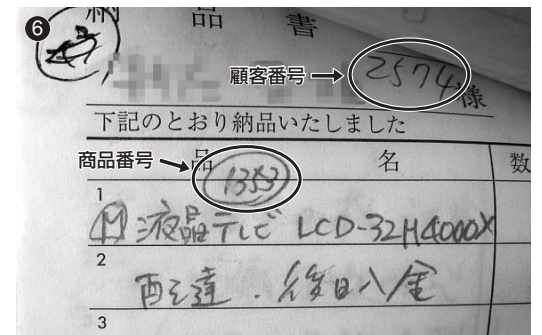 ❻
納品書
顧客番号 2574 様
下記のとおり納品いたしました
商品番号 品名 数
1353
1 Ⓜ液晶テレビ LCD-32H4000X
2 配達.後日入金
3